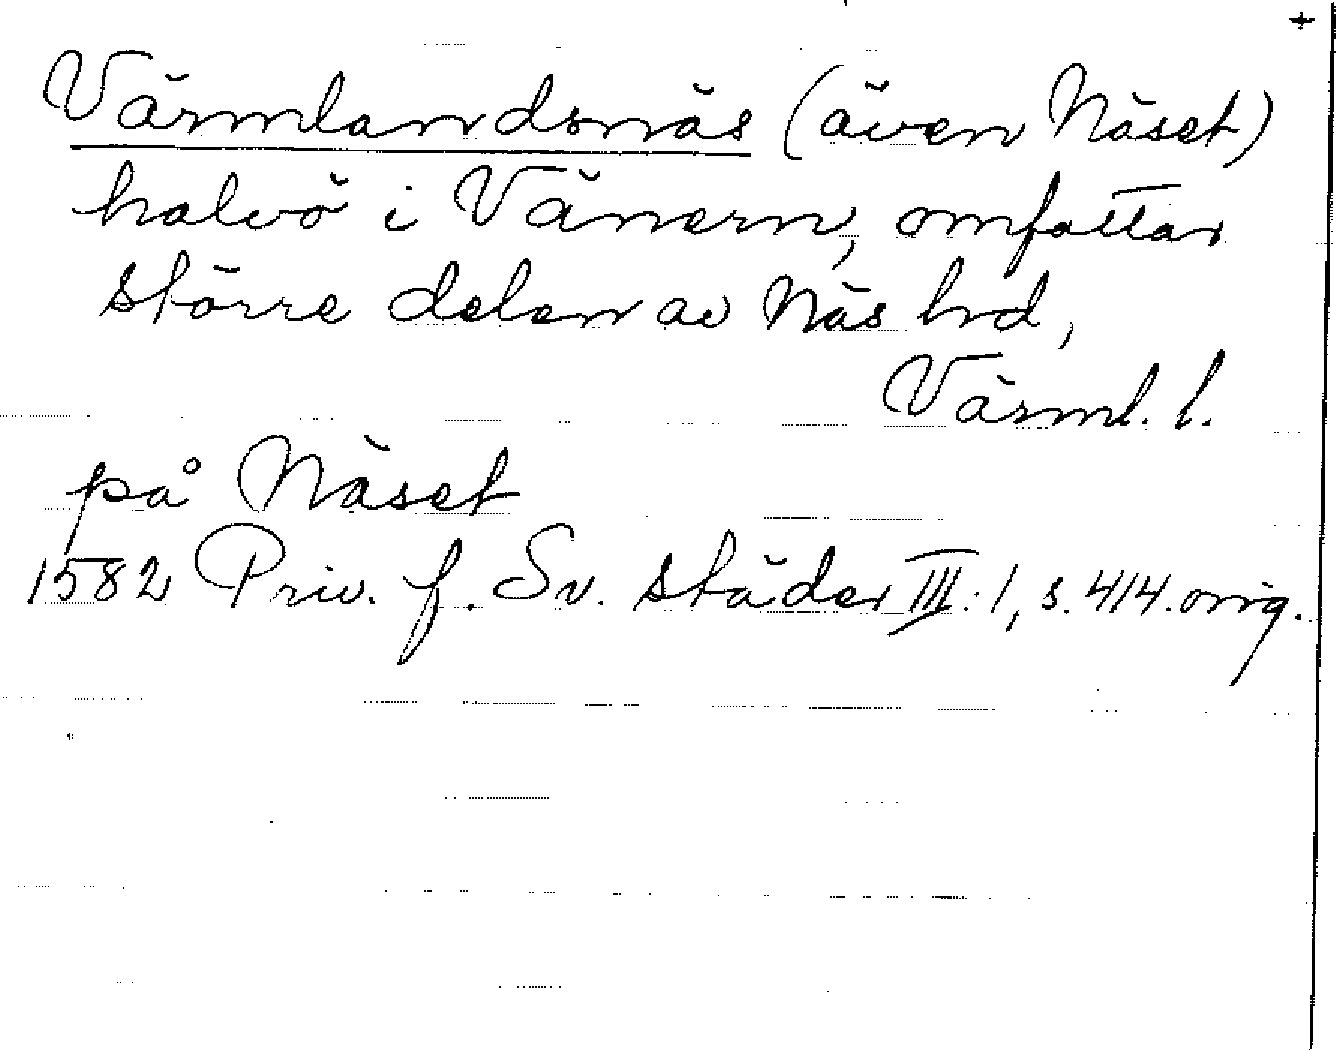 +
Värmlandsnäs (även Näset)
halvö i Vänern, omfattar
större delen av Näs hd,
Värml. l.
på Näset
1582 Priv. f. Sv. städer III:1, s. 414. orig.